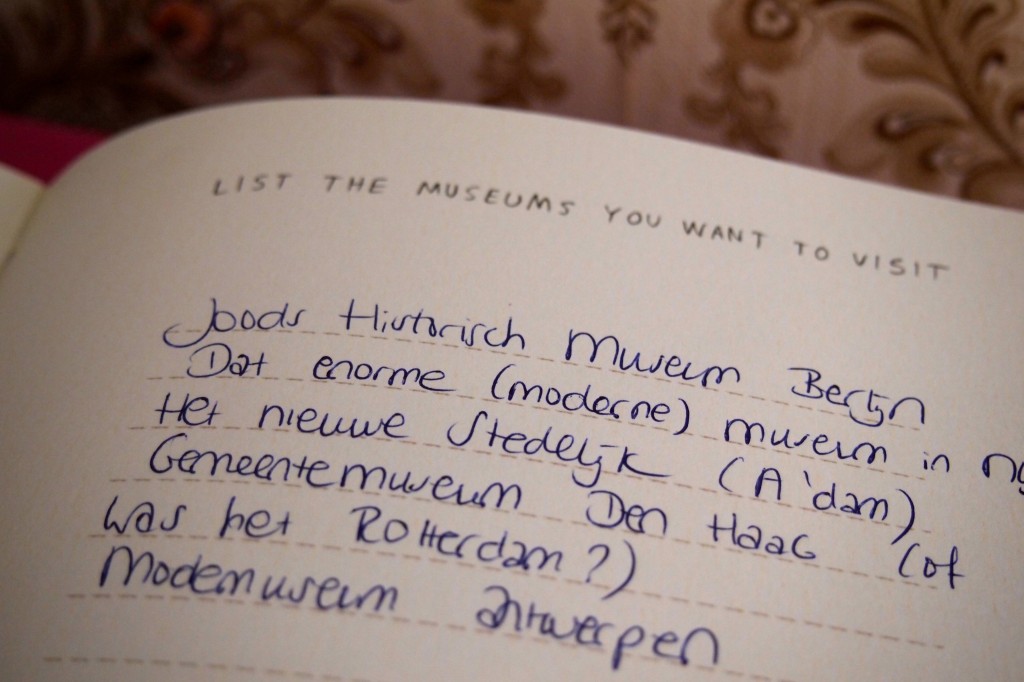 LIST THE MUSEUMS YOU WANT TO VISIT
Joods Historisch Museum Berlijn
Dat enorme (moderne) museum in
Het nieuwe Stedelijk (A'dam)
Gemeentemuseum Den Haag (of
was het Rotterdam?)
Modemuseum Antwerpen